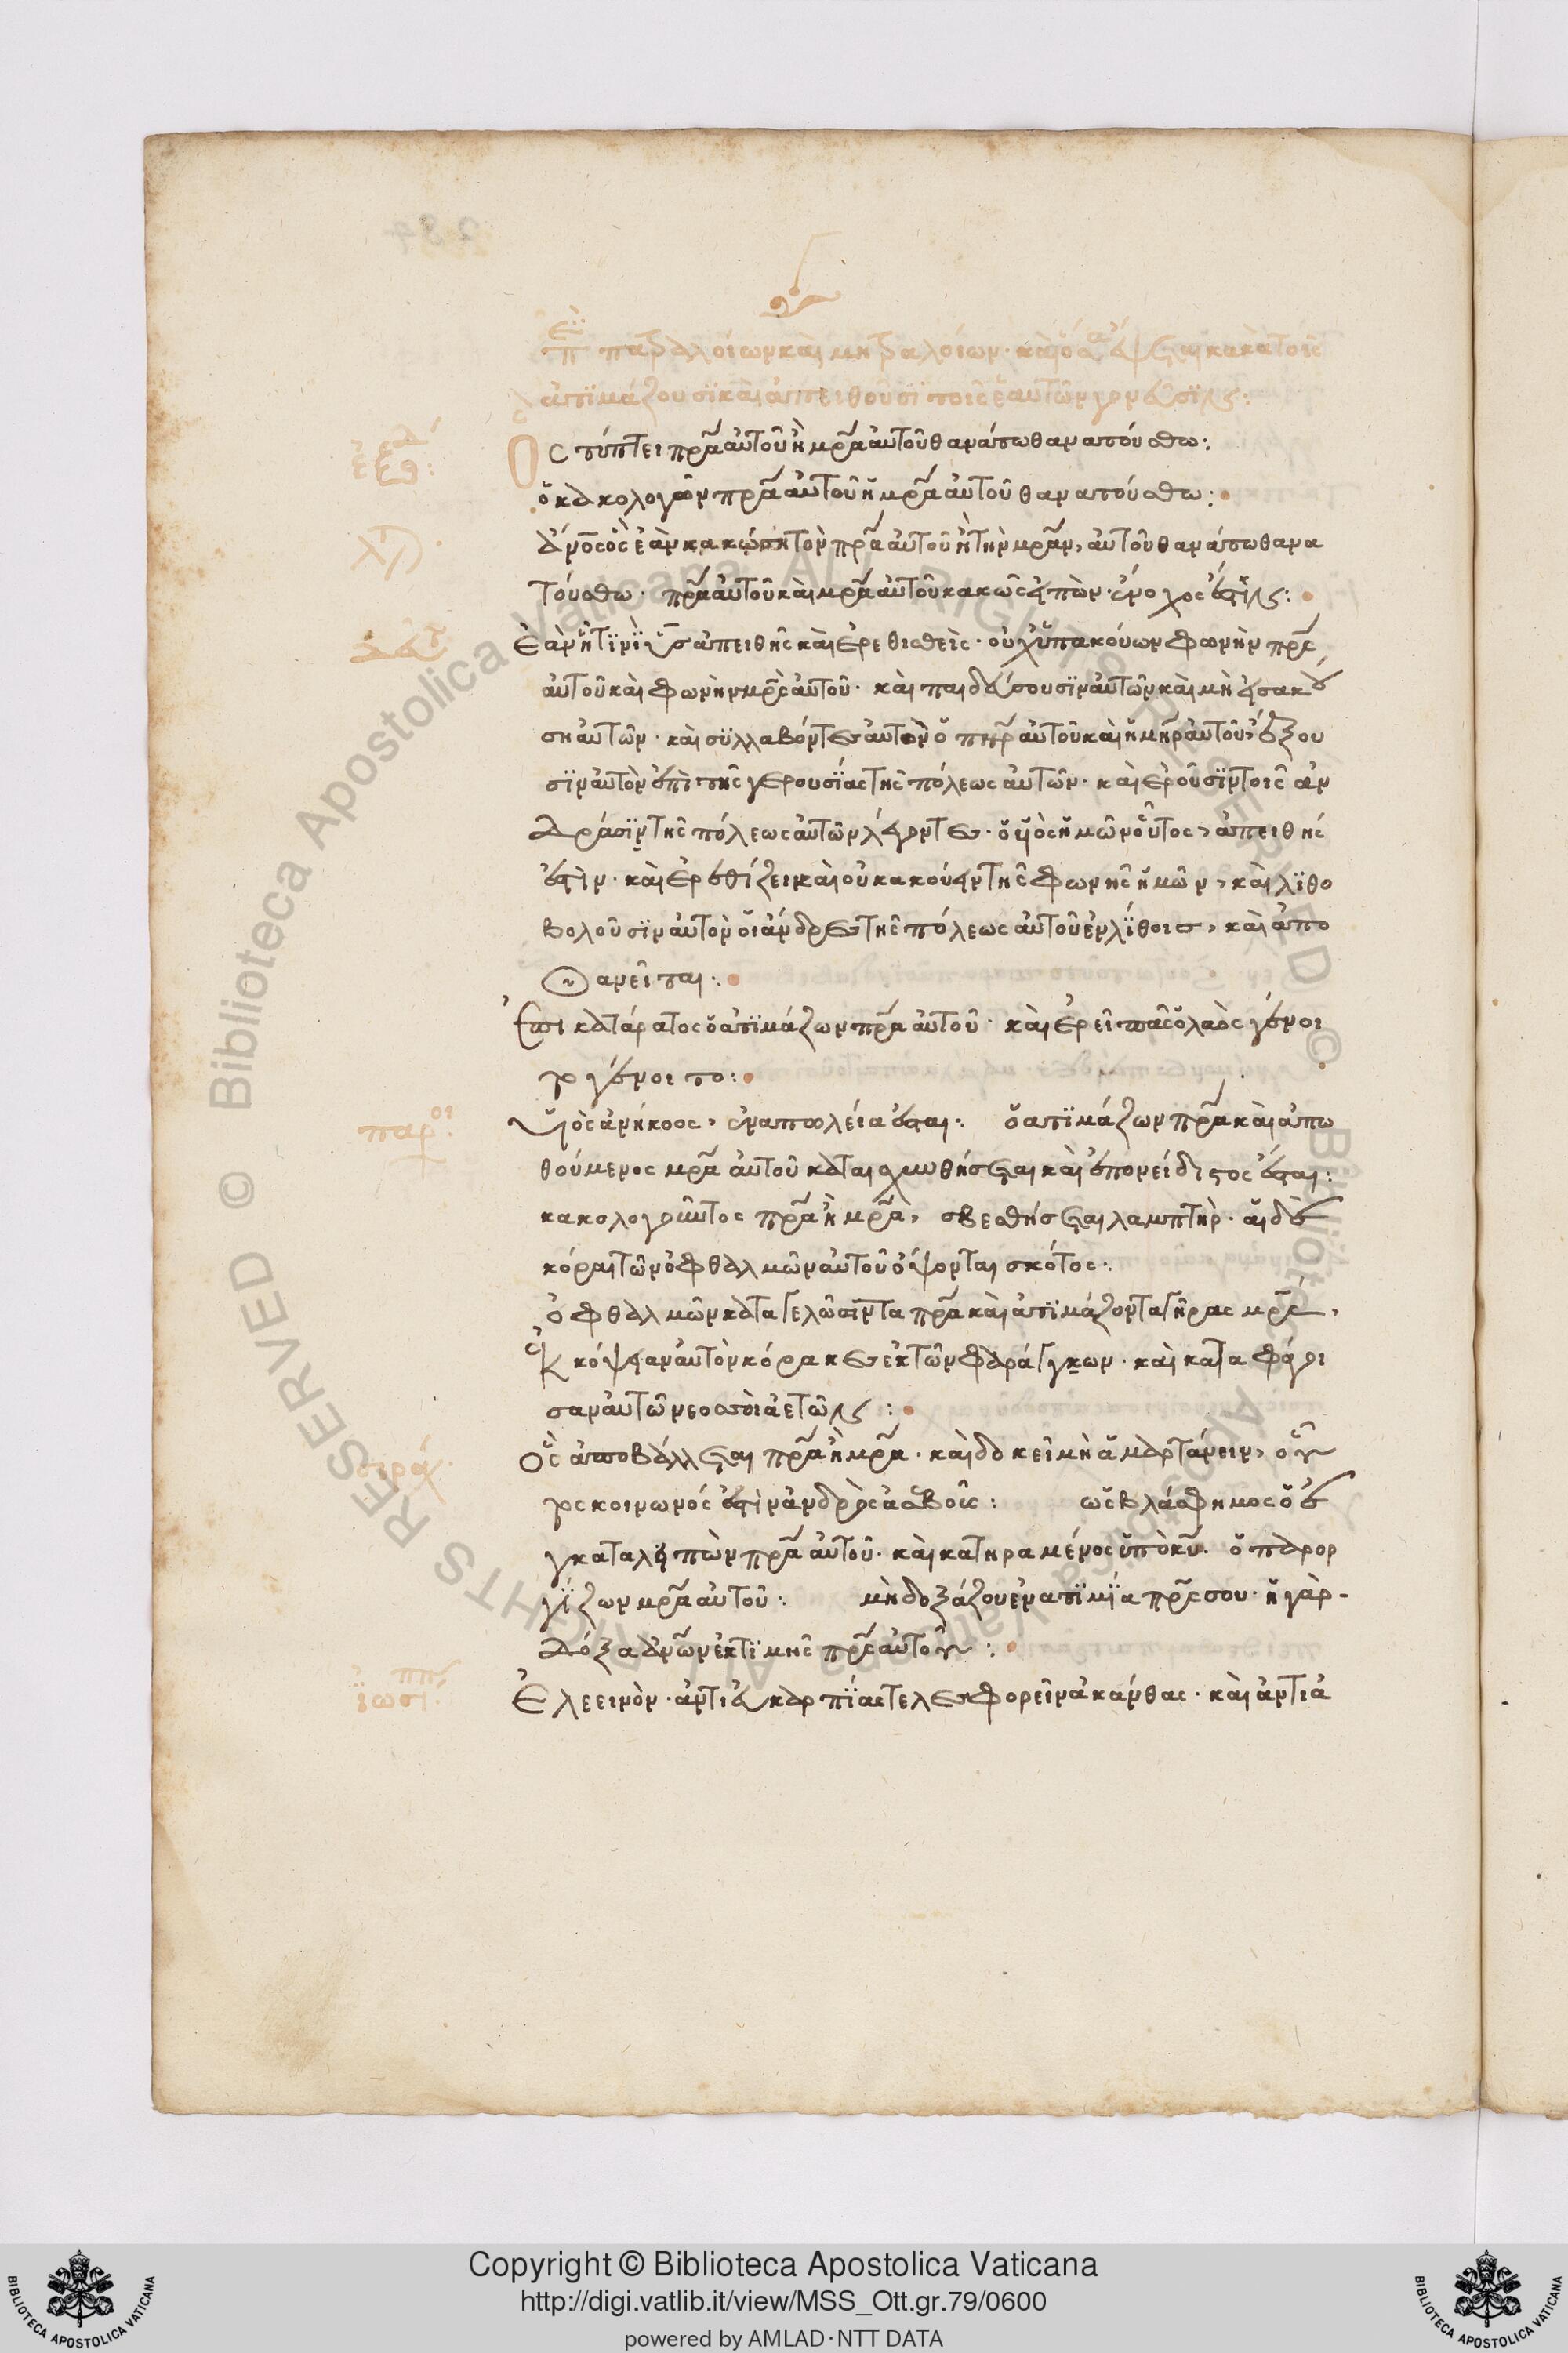 περὶ πατραλοιῶν καὶ μητραλοιῶν· καὶ ὅσα ἕψεται κακὰ τοῖς
ἀτιμάζουσι καὶ ἀπειθοῦσι τοῖς ἑαυτῶν γονεῦσιν:
ἐξοδ:
Ὃς τύπτει πρα αὐτοῦ ἢ μρα αὐτοῦ θανάτω θανατούσθω:
ὁ κακολογῶν πρα αὐτοῦ ἢ μρα αὐτοῦ θανατούσθω:
ἄνος ὃς ἐὰν κακώση τὸν πρα αὐτοῦ ἢ τὴν μραν, αὐτοῦ θανάτω θανα
τούσθω· πρα αὐτοῦ καὶ μρα αὐτοῦ κακῶς εἰπὼν· ἔνοχος ἔσται:
Ἐὰν ᾖ τινὶ υς ἀπειθὴς καὶ ἐρεθισθεὶς· οὐχ ὑπακούων φωνὴν πρς
αὐτοῦ καὶ φωνὴν μρς αὐτοῦ· καὶ παιδεύσουσιν αὐτῶν καὶ μὴ εἰσακού
ση αὐτῶν· καὶ συλλαβόντες αὐτὸν ὁ πηρ αὐτοῦ καὶ ἡ μηρ αὐτοῦ, ἐξου
σιν αὐτὸν ἐπὶ τῆς γερουσίας τῆς πόλεως αὐτῶν· καὶ ἐροῦσιν τοῖς ἀν
δράσιν τῆς πόλεως αὐτῶν λέγοντες· ὁ υἱὸς ἡμῶν οὗτος, ἀπειθής
ἐστὶν· καὶ ἐρεθίζει καὶ οὐκ ἀκούει τῆς φωνῆς ἡμῶν, καὶ λιθο
βολοῦσιν αὐτὸν οἱ ἄνδρες τῆς πόλεως αὐτοῦ ἐν λίθοις, καὶ ἀπο
θανεῖται:
Ἐπικατάρατος ὁ ἀτιμάζων πρα αὐτοῦ· καὶ ἐρεῖ πᾶς ὁ λαὸς γένοι
το γένοιτο:
παροι:
Υἱὸς ἀνήκοος, ἐν ἀπωλεία ἔσται: ὁ ἀτιμάζων πρα καὶ ἀπω
θούμενος μρα αὐτοῦ καταισχυνθήσεται καὶ ἐπονείδιστος ἔσται:
κακολογοῦντος πρα ἢ μρα, σβεσθήσεται λαμπτὴρ· αἱ δὲ
κόραι τῶν ὀφθαλμῶν αὐτοῦ ὄψονται σκότος:
ὀφθαλμῶν καταγελῶσιν τα πρα καὶ ἀτιμάζοντα γῆρας μρς,
ἐκκόψειαν αὐτὸν κόρακες ἐκ τῶν φαράγγων· καὶ καταφάγοι
σαν αὐτῶν νεοσσοὶ ἀετῶν:
σιράχ·
Ὃς ἀποβάλλεται πρα ἢ μρα· καὶ δοκεῖ μὴ ἁμαρτάνειν, οὗ
τος κοινωνός ἐστὶν ἀνδρὸς ἀσεβοῦς: ὡς βλάσφημος ὁ ἐ
γκαταλειπὼν πρα αὐτοῦ· καὶ κατηραμένος ὑπὸ κυ· ὁ παρορ
γίζων μρα αὐτοῦ: μὴ δοξάζου ἐν ἀτιμία πρς σου· ἡ γὰρ
δόξα ἀνων ἐκ τιμῆς πρς αὐτοῦ:
ἰωσίππ:
Ἐλεεινὸν· ἀντὶ εὐκαρπίας τελεσφορεῖν ἀκάνθας· καὶ ἀντὶ ἀ
Copyright © Biblioteca Apostolica Vaticana
http://digi.vatlib.it/view/MSS_Ott.gr.79/0600
powered by AMLAD·NTT DATA